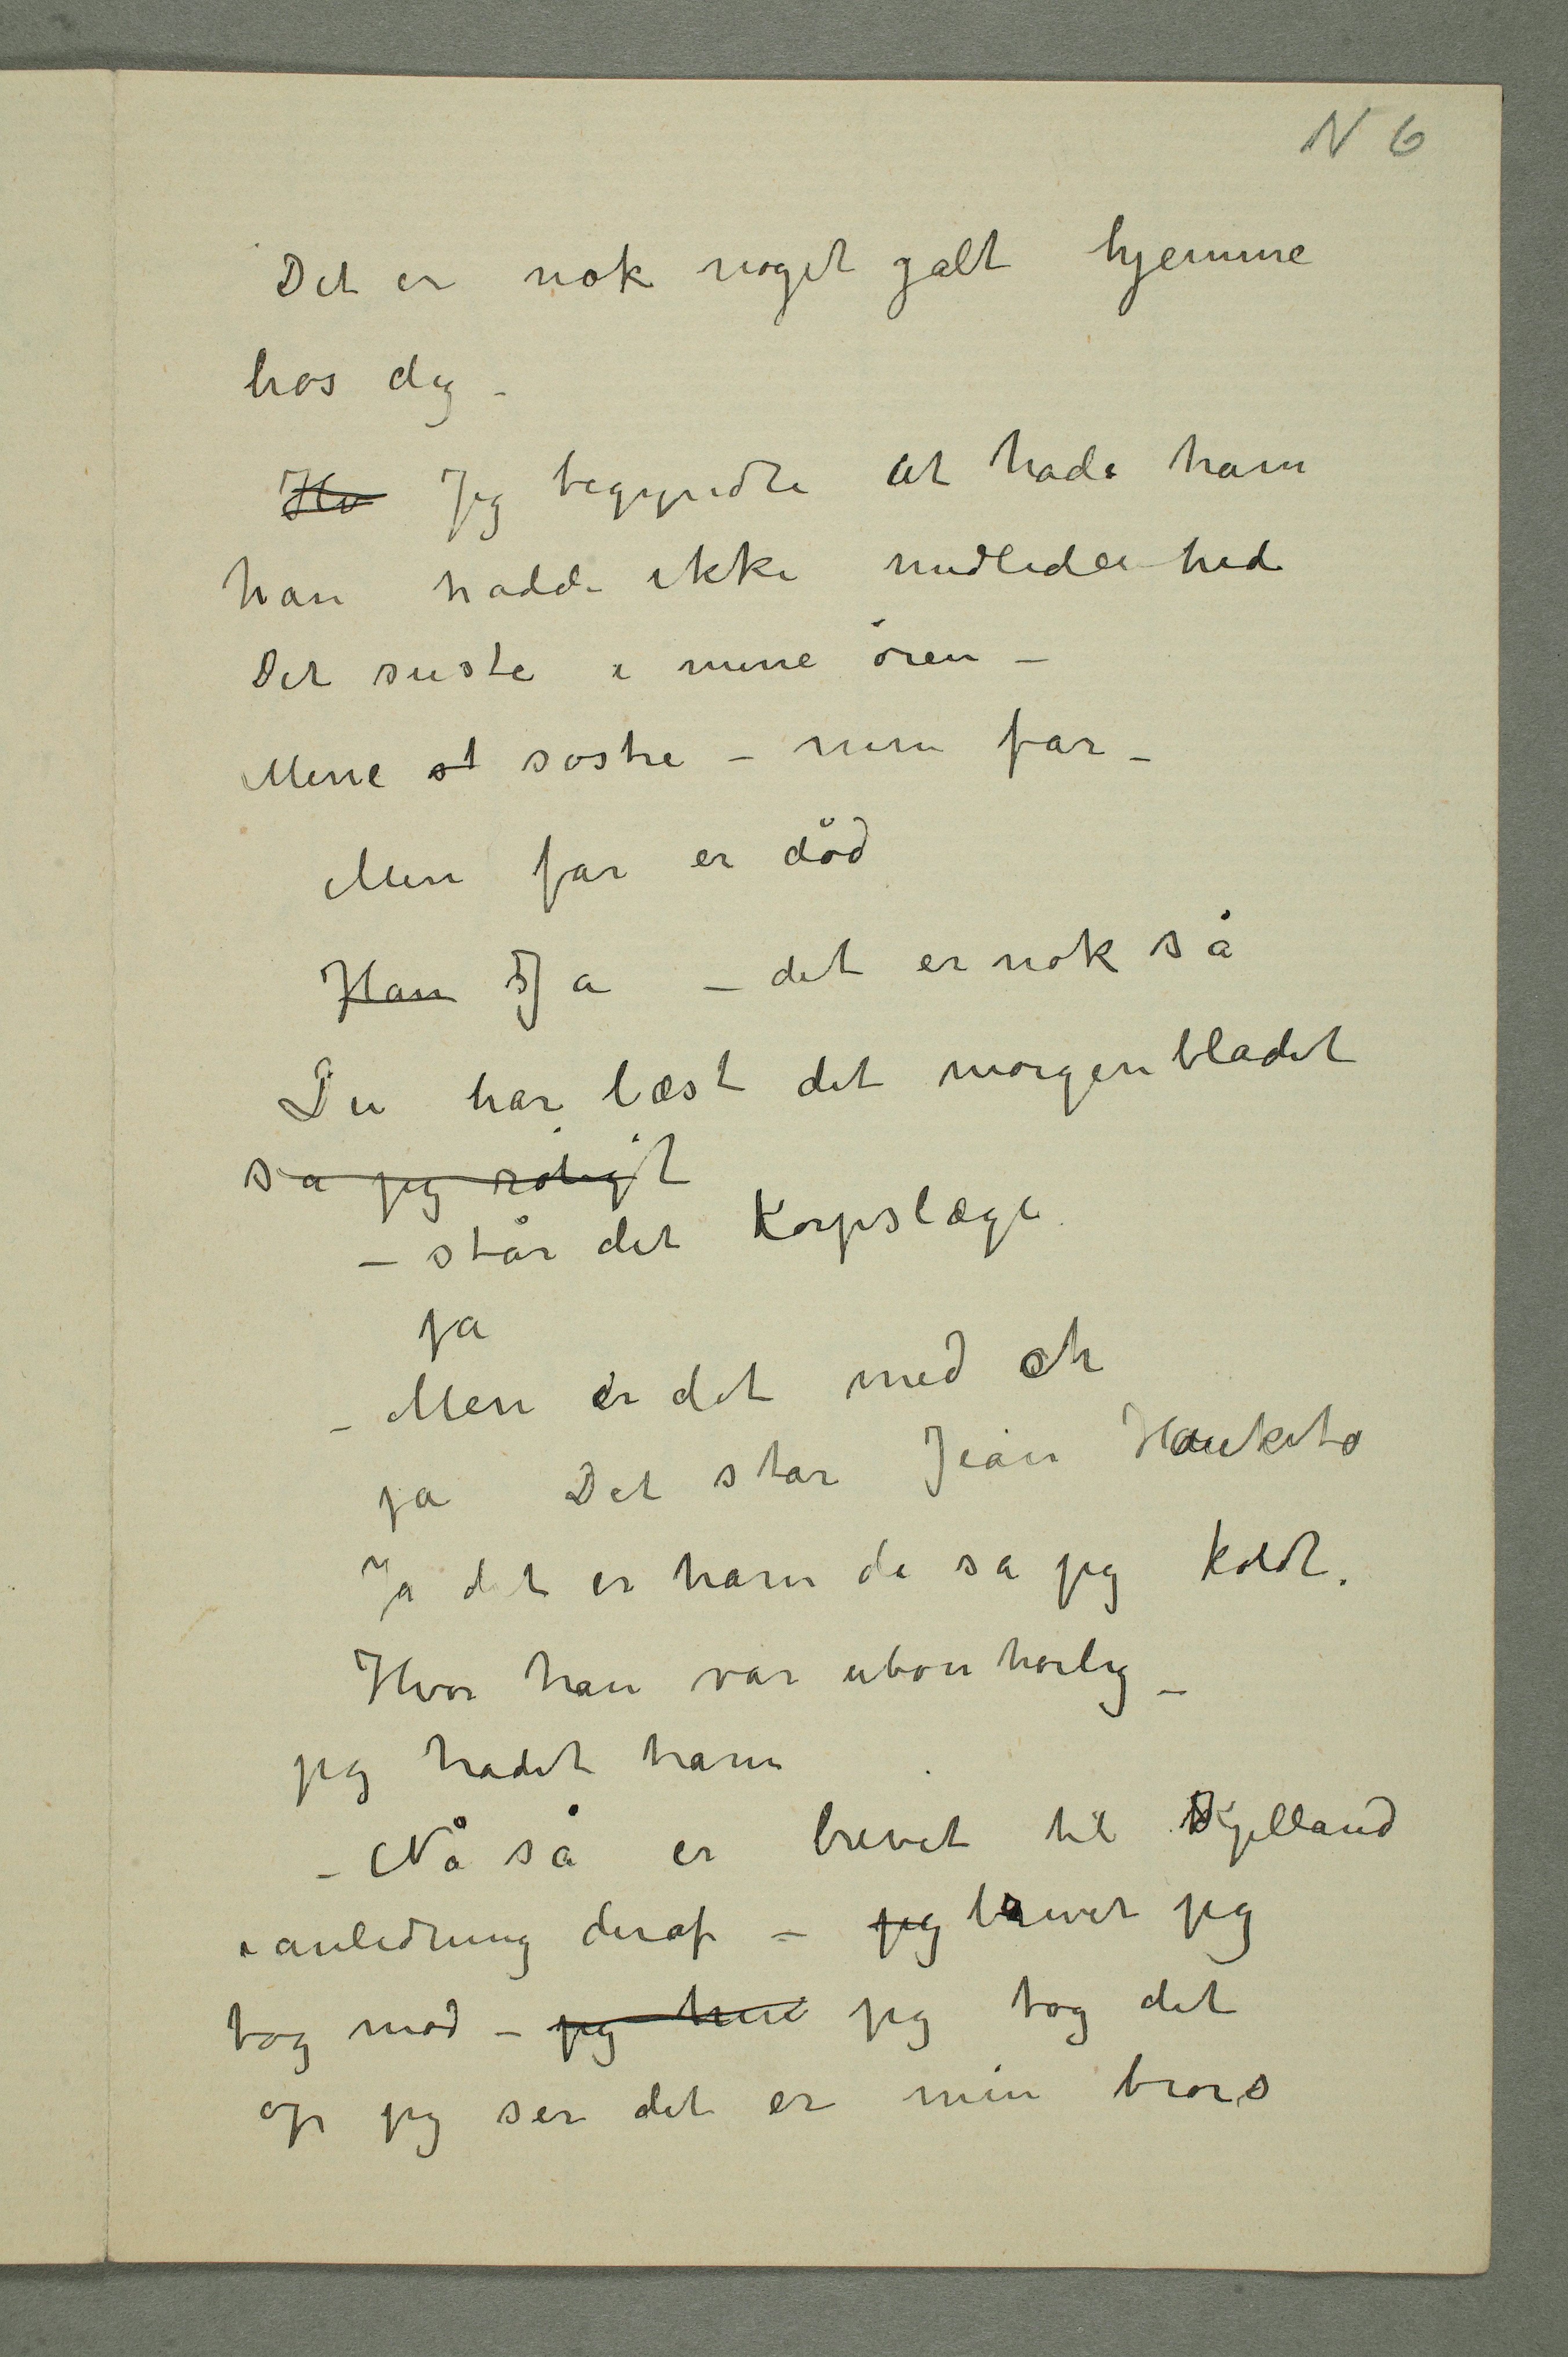 N 6
Det er nok noget galt hjemme
hos dig –
Hv Jeg begyndte at hade ham
han hadde ikke medlidenhed
Det suste i mine ören –
Mine st søstre – min far –
Min far er död
Han Ja – det er nok så
Du har læst det morgenbladet
sa jeg roligt
– står det Korpslæge
ja
– Men er det med ch
ja Det står Jean
Ja det er ham da sa jeg koldt.
Hvor han var ubonhørlig –
jeg hadet ham
– Nå så er brevet til Kjelland
i anledning deraf – jeg brevet jeg
tog mod – jeg jeg tog det
op jeg ser det er min brors